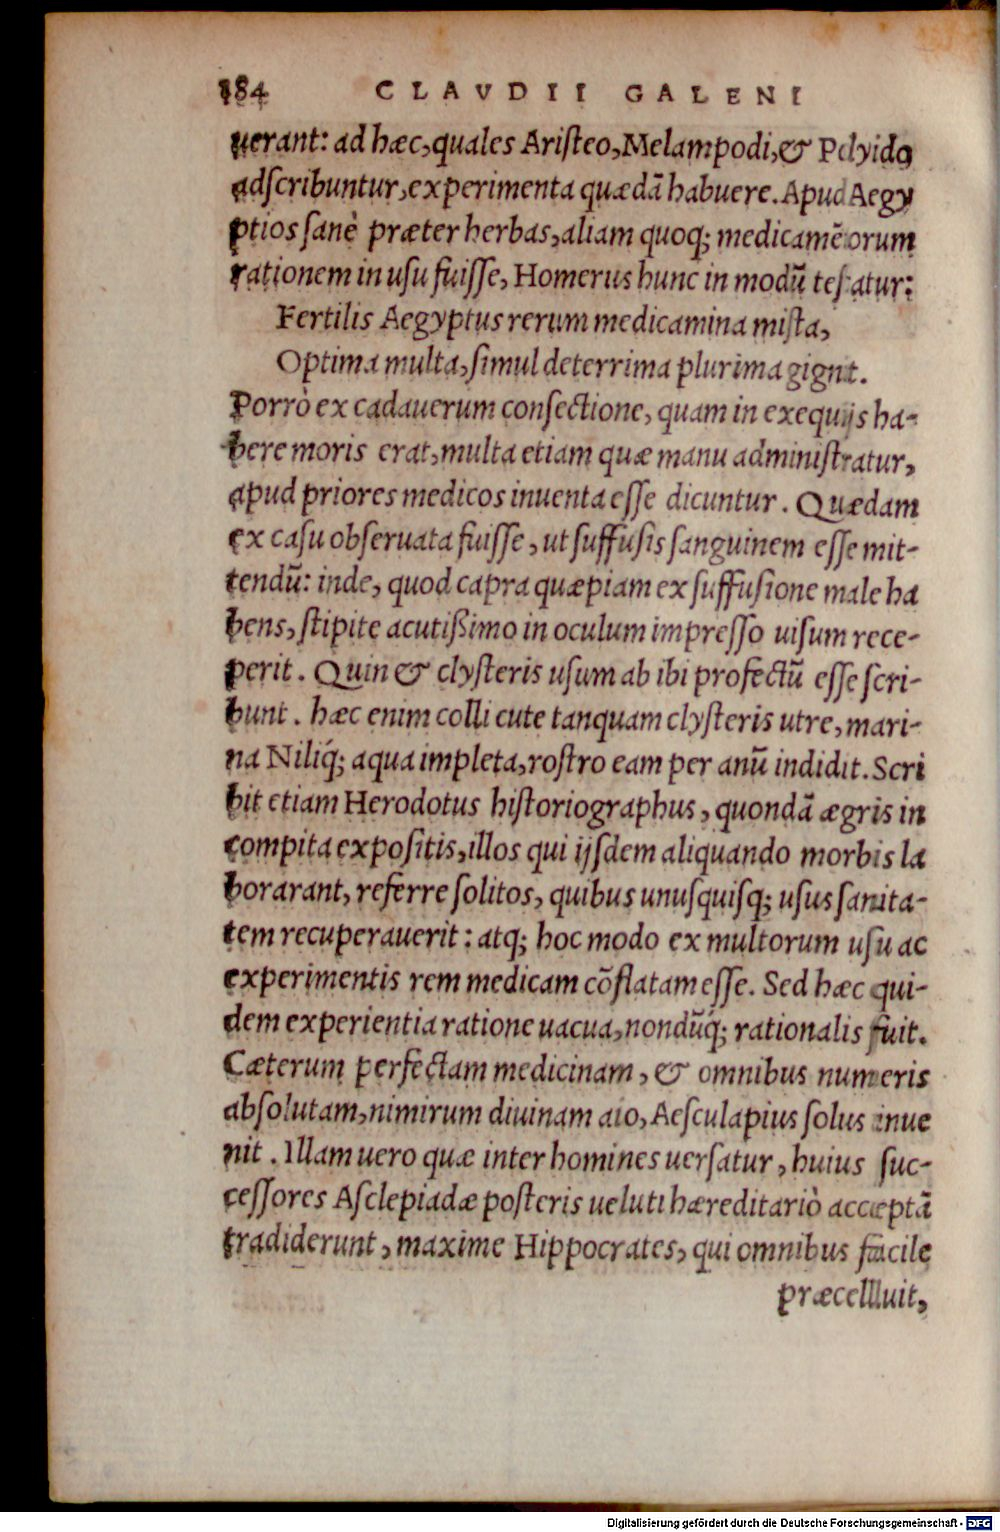 184 CLAVDII GALENI
uerant: ad hæc, quales Aristeo, Melampodi, & Polyido
adscribuntur, experimenta quædã habuere. Apud Aegy
ptios sanè præter herbas, aliam quoq; medicamẽtorum
rationem in usu fuisse, Homerus hunc in modũ testatur:
Fertilis Aegyptus rerum medicamina mista,
Optima multa, simul deterrima plurima gignit.
Porrò ex cadauerum consectione, quam in exequijs ha-
bere moris erat, multa etiam quæ manu administratur,
apud priores medicos inuenta esse dicuntur. Quædam
ex casu obseruata fuisse, ut suffusis sanguinem esse mit-
tendũ: inde, quod capra quæpiam ex suffusione male ha
bens, stipite acutißimo in oculum impresso uisum rece-
perit. Quin & clysteris usum ab ibi profectũ esse scri-
bunt. hæc enim colli cute tanquam clysteris utre, mari-
na Niliq́; aqua impleta, rostro eam per anũ indidit. Scri
bit etiam Herodotus historiographus, quondã ægris in
compita expositis, illos qui ijsdem aliquando morbis la
borarant, referre solitos, quibus unusquisq; usus sanita-
tem recuperauerit: atq; hoc modo ex multorum usu ac
experimentis rem medicam cõflatam esse. Sed hæc qui-
dem experientia ratione uacua, nondũq́; rationalis fuit.
Cæterum perfectam medicinam, & omnibus numeris
absolutam, nimirum diuinam aio, Aesculapius solus inue
nit. Illam uero quæ inter homines uersatur, huius suc-
cessores Asclepiadæ posteris ueluti hæreditariò acceptã
tradiderunt, maxime Hippocrates, qui omnibus facile
præcelluit,
Digitalisierung gefördert durch die Deutsche Forschungsgemeinschaft - DFG